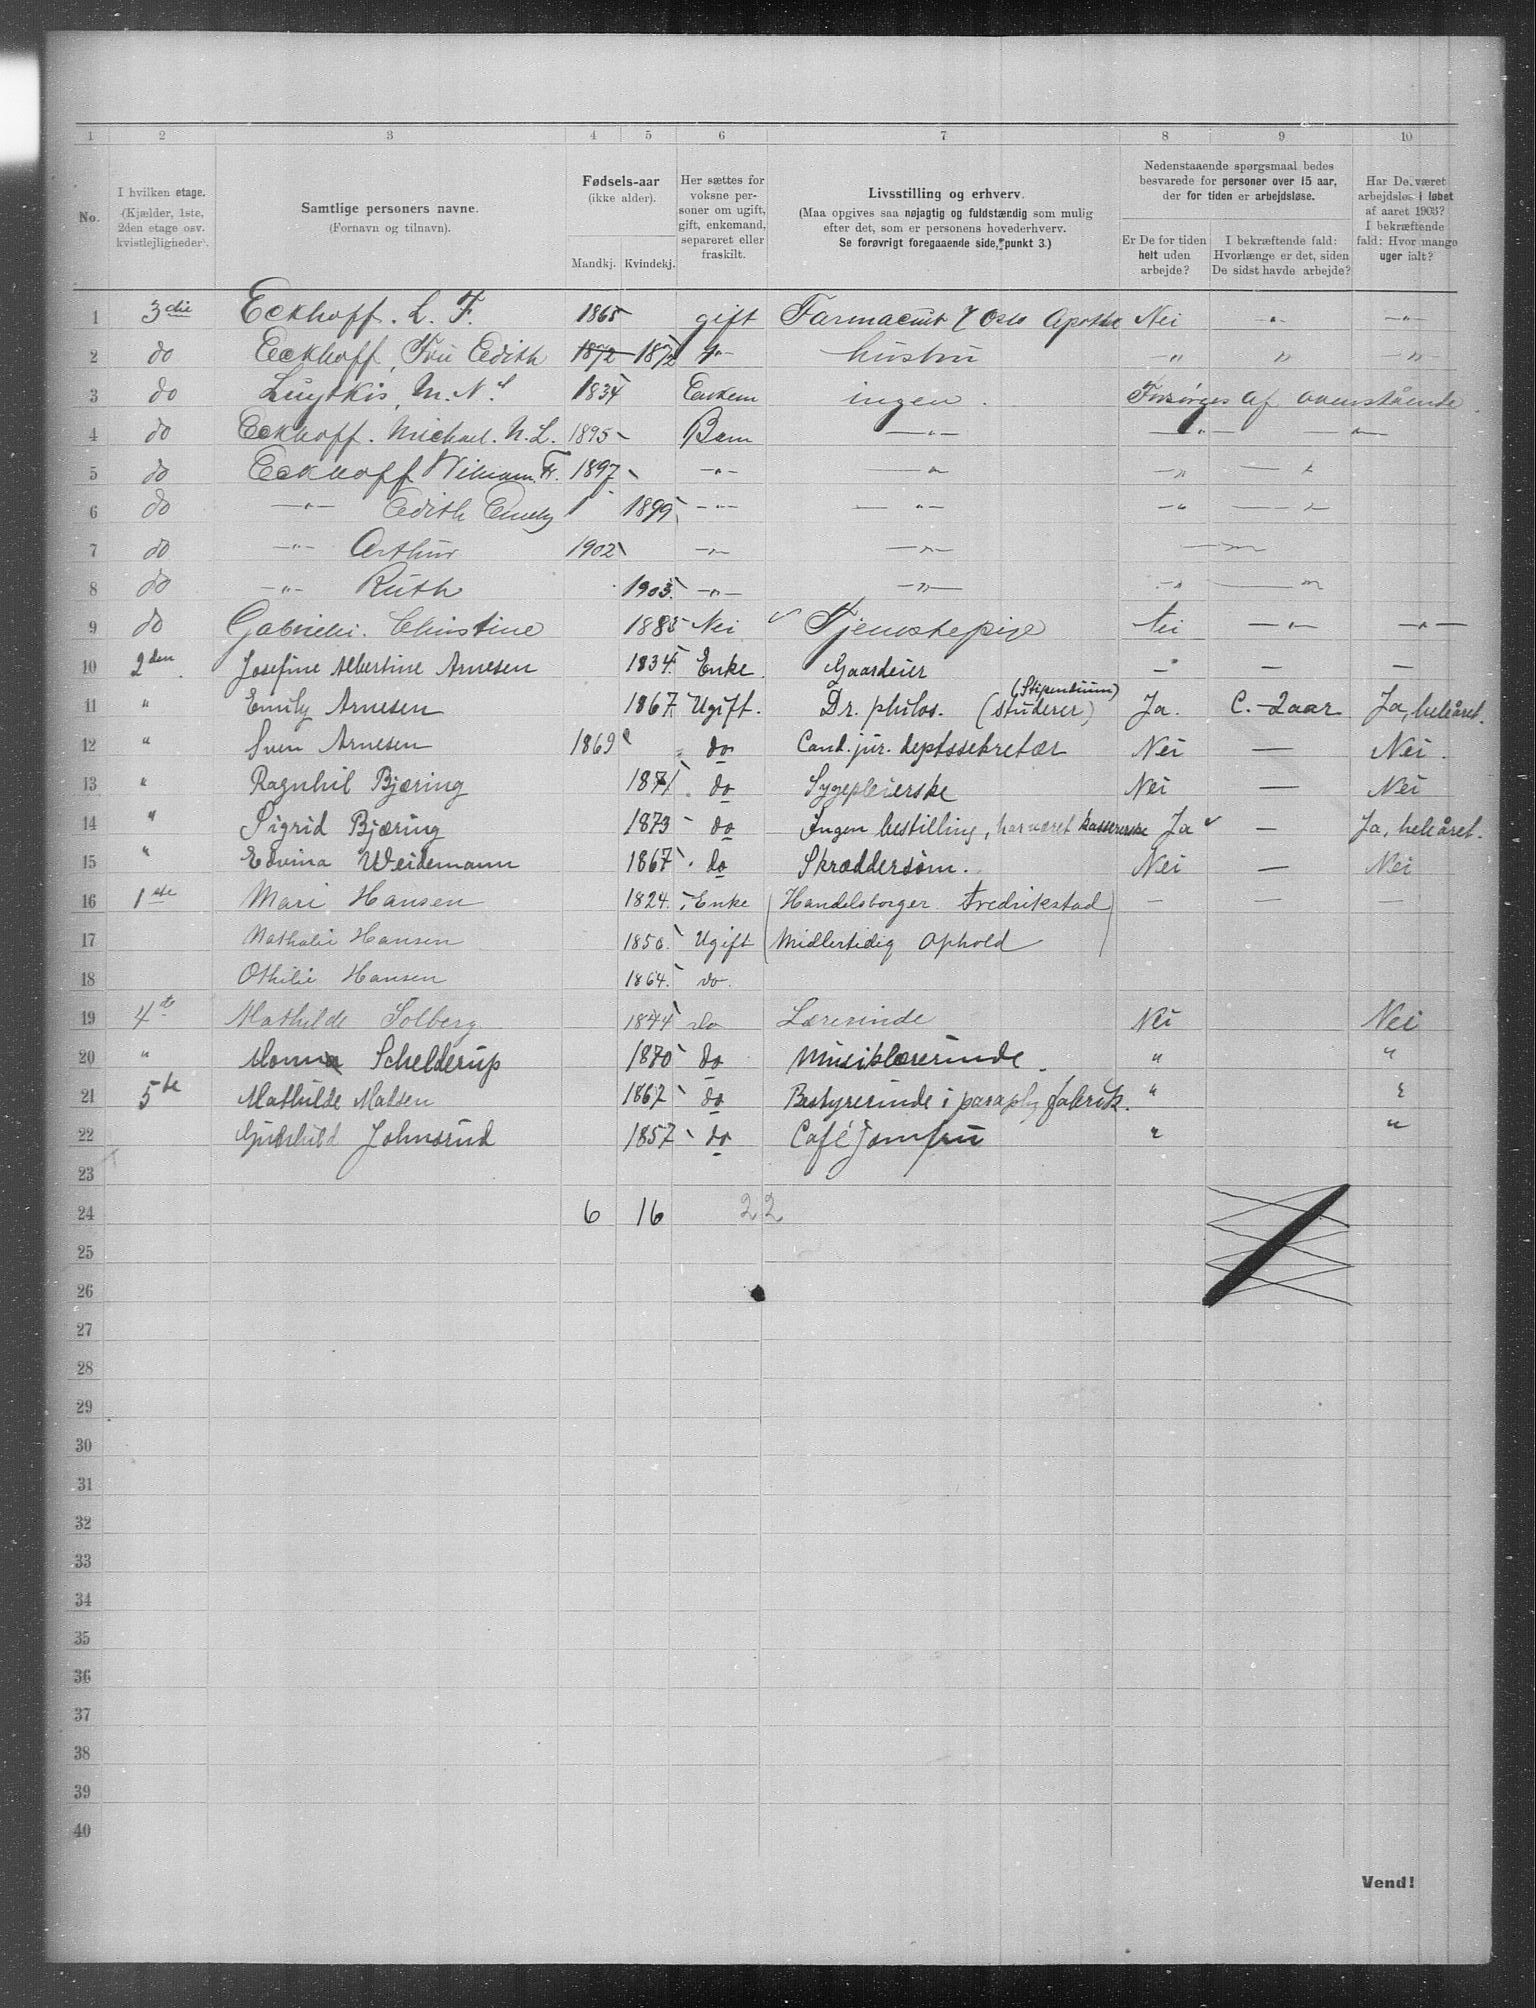 1 2 3 4 5 6 7 8 9 10
No.
I hvilken etage.
(Kjælder, 1ste,
2den etage osv.
kvistlejligheder).
Samtlige personers navne.
(Fornavn og tilnavn).
Fødsels-aar
(ikke alder).
Mandkj. Kvindekj.
Her sættes for
voksne per-
soner om ugift,
gift, enkemand,
separeret eller
fraskilt.
Livsstilling og erhverv.
(Maa opgives saa nøjagtig og fuldstændig som mulig
efter det, som er personens hovederhverv.
Se forøvrigt foregaaende side, punkt 3.)
Nedenstaaende spørgsmaal bedes
besvarede for personer over 15 aar,
der for tiden er arbejdsløse.
Er De for tiden
helt uden
arbejde?
I bekræftende fald:
Hvorlænge er det, siden
De sidst havde arbejde?
Har De været
arbejdsløs i løbet
af aaret 1903?
I bekræftende
fald: Hvor mange
uger ialt?
1 3die Eckhoff. L. F. 1865 gift Farmaceut / Oslo Apothek Nei -"- -"-
2 do Eckhoff, Fru Edith 1872 1872 -"- hustru -"- " -"-
3 do M. N. 1834 Enkem ingen. Forsørges af ovenstående
4 do Eckhoff. Michael. N. L. 1895 Barn -"- -"- -"-
5 do Eckhoff William. Fr. 1897 -"- -"- -"- -"-
6 do -"- Edith Emely 1899 -"- -"- -"- -"-
7 do -"- Arthur 1902 -"- -"- -"-
8 do -"- Ruth 1903. -"- -"- -"- -"-
9 do Christine 1885 Nei Tjenestepige Nei -"- -"-
10 2den Josefine Albertine Arnesen 1834 Enke. Gaardeier - - -
11 " Emily Arnesen 1867 Ugift. Dr. philos. (studerer) (Stipendium) Ja. C. 2 aar Ja, hele året.
12 " Sven Arnesen 1869 do Cand. jur. deptssekretær Nei — Nei.
13 " Ragnhil Bjæring 1871 do Sygepleierske Nei — Nei
14 " Sigrid Bjæring 1873 do Ingen bestilling, har været kassererske Ja — Ja, hele året.
15 " Edvina Weidemann 1867 do Skræddersøm. Nei — Nei
16 1ste Mari Hansen 1824 Enke (Handelsborger Fredrikstad) — — —
17 Nathalie Hansen 1850 Ugift (Midlertidig Ophold)
18 Othilie Hansen 1864 do.
19 4de Mathilde Solberg 1844 do Lærerinde Nei Nei
20 " Schelderup 1870 do Musiklærerinde. " "
21 5te Mathilde Madsen 1867 do Bestyrerinde i paraply fabrik. " "
22 Gunhild Johnsrud 1857 do Café Jomfru " "
23
24 6 16 22
25
26
27
28
29
30
31
32
33
34
35
36
37
38
39
40
Vend!